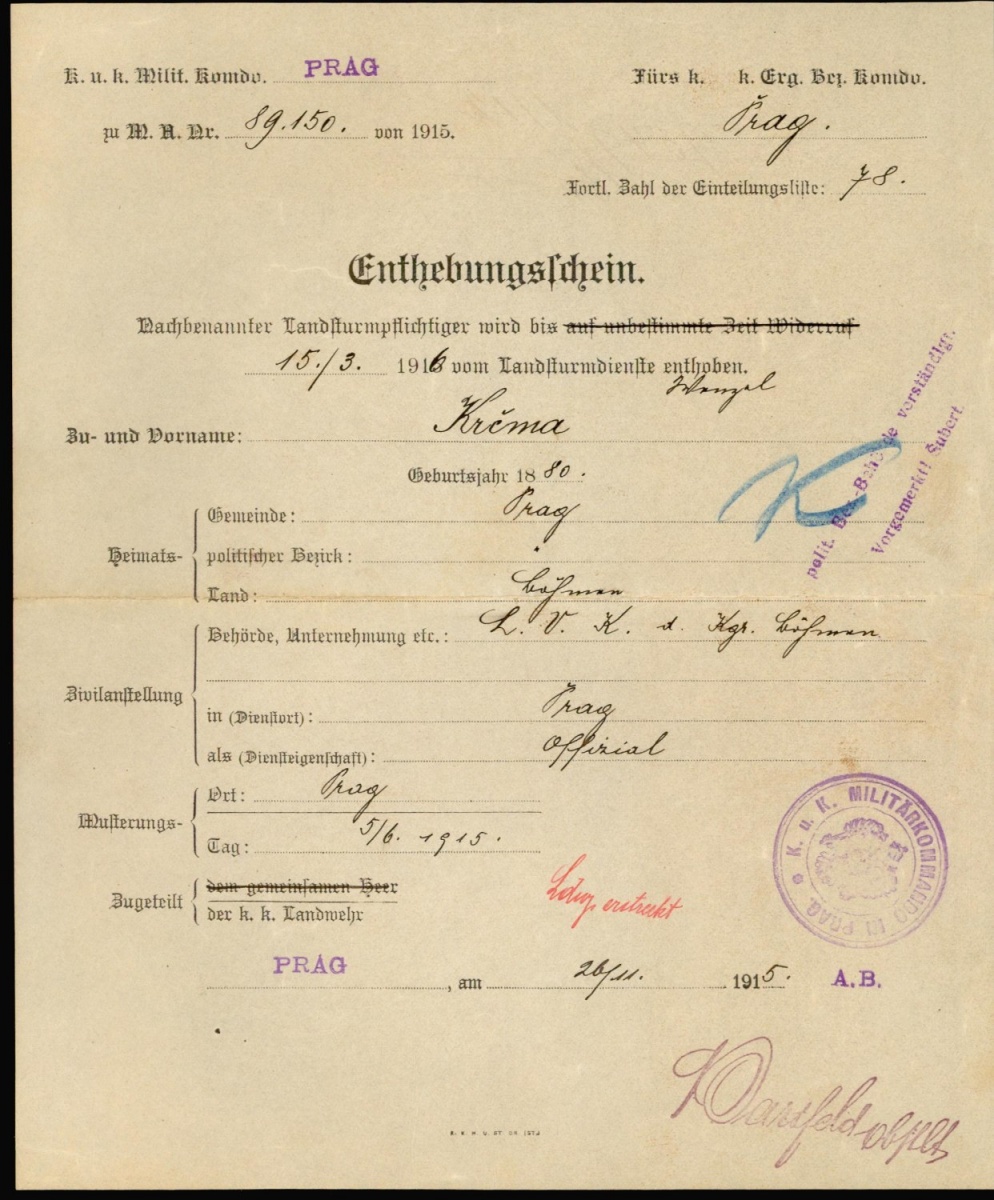 K. u. k. Milit. Komdo. PRAG
Fürs k. k. Erg. Bez. Komdo.
zu M. A. Nr. 89.150. von 1915.
Prag.
Fortl. Zahl der Einteilungsliste: 78.
Enthebungsschein.
Nachbenannter Landsturmpflichtiger wird bis auf unbestimmte Zeit Widerruf
15./3. 1916 vom Landsturmdienste enthoben.
Wenzel
Zu- und Vorname: Krčma
Geburtsjahr 1880.
Heimats-
Gemeinde: Prag
politischer Bezirk:
Land: Böhmen
Zivilanstellung
Behörde, Unternehmung etc.: L. V. K. d. Kgr. Böhmen
in (Dienstort): Prag
als (Diensteigenschaft): Offizial
Musterungs-
Ort: Prag
Tag: 5/6. 1915.
Zugeteilt
dem gemeinsamen Heer
der k. k. Landwehr
polit. Bez.-Behörde verständigt.
Vorgemerkt! Šubert
K
erstreckt
K. u. K. MILITÄRKOMMANDO IN PRAG.
PRAG, am 26/11. 1915. A.B.